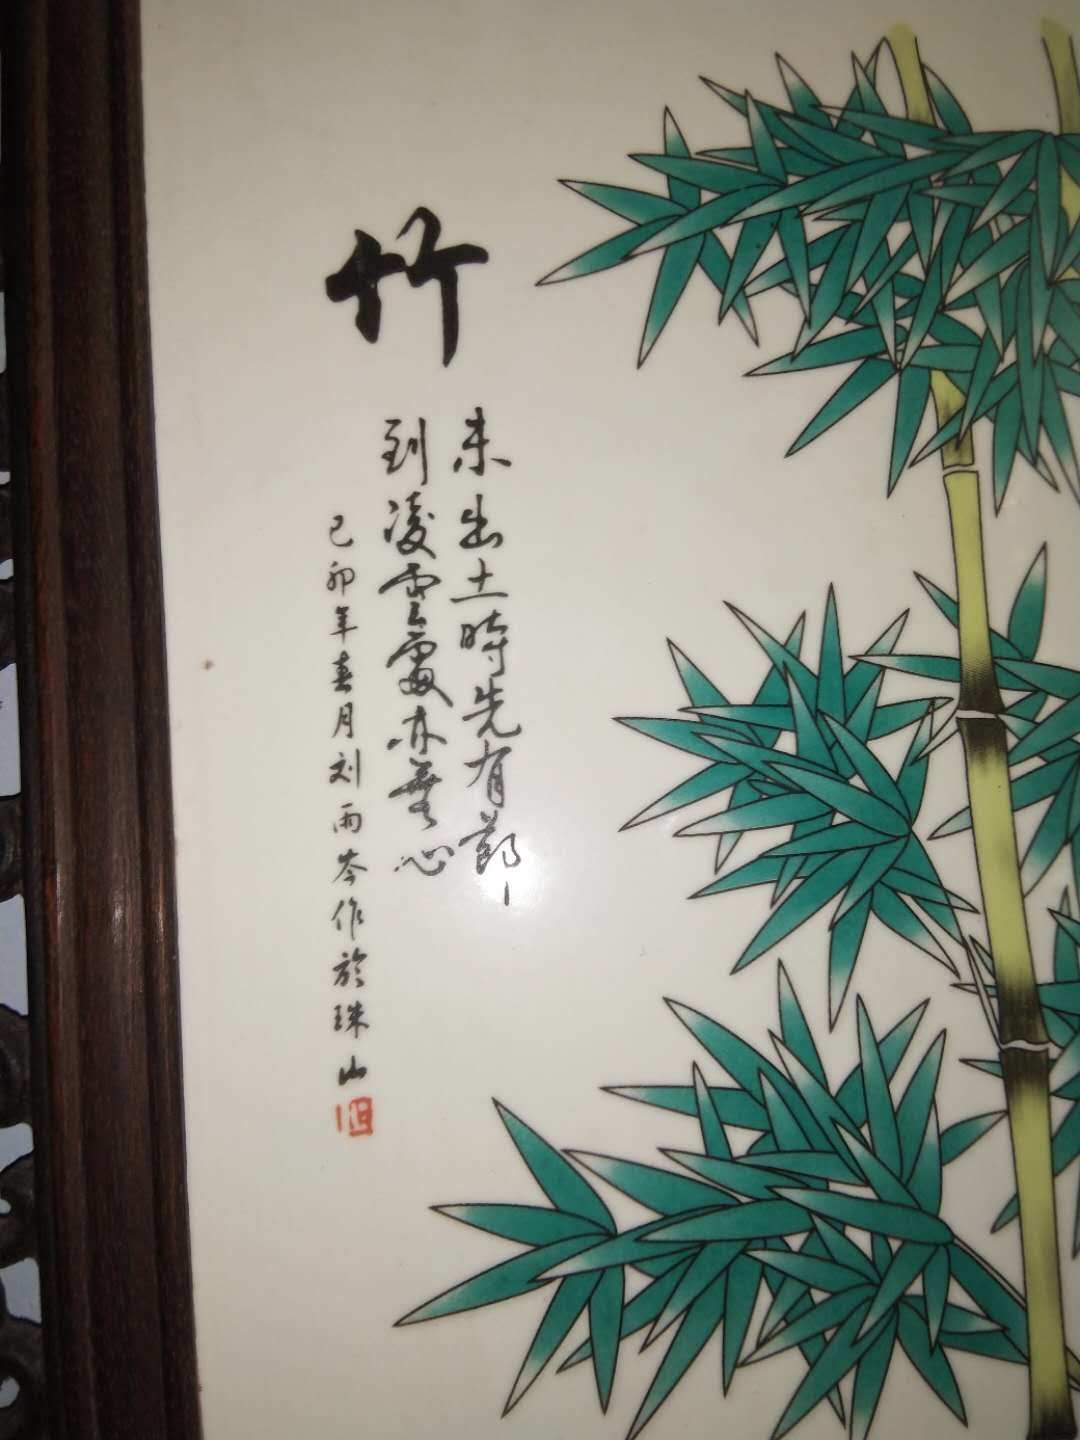 竹
未出土時先有節
到凌雲處亦無心
己卯年春月刘雨岑作於珠山